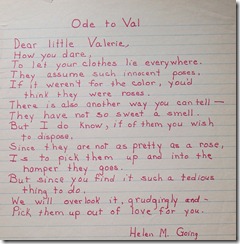 Ode to Val
Dear little Valerie,
How you dare,
To let your clothes lie everywhere.
They assume such innocent poses.
If it weren't for the color, you'd
think they were roses.
There is also another way you can tell—
They have not so sweet a smell.
But I do know, if of them you wish
to dispose.
Since they are not as pretty as a rose,
Is to pick them up and into the
hamper they goes.
But since you find it such a tedious
thing to do.
We will overlook it, grudgingly and—
Pick them up out of love for you.
Helen M. Going